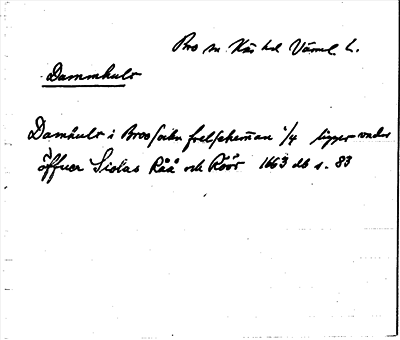 Bro sn Näs hd Värml. l.
Dammhult
Damhult i Broo Sokn frelscheman 1/4 ligger under
öffuer Sidas Råå och Röör 1663 db s. 83